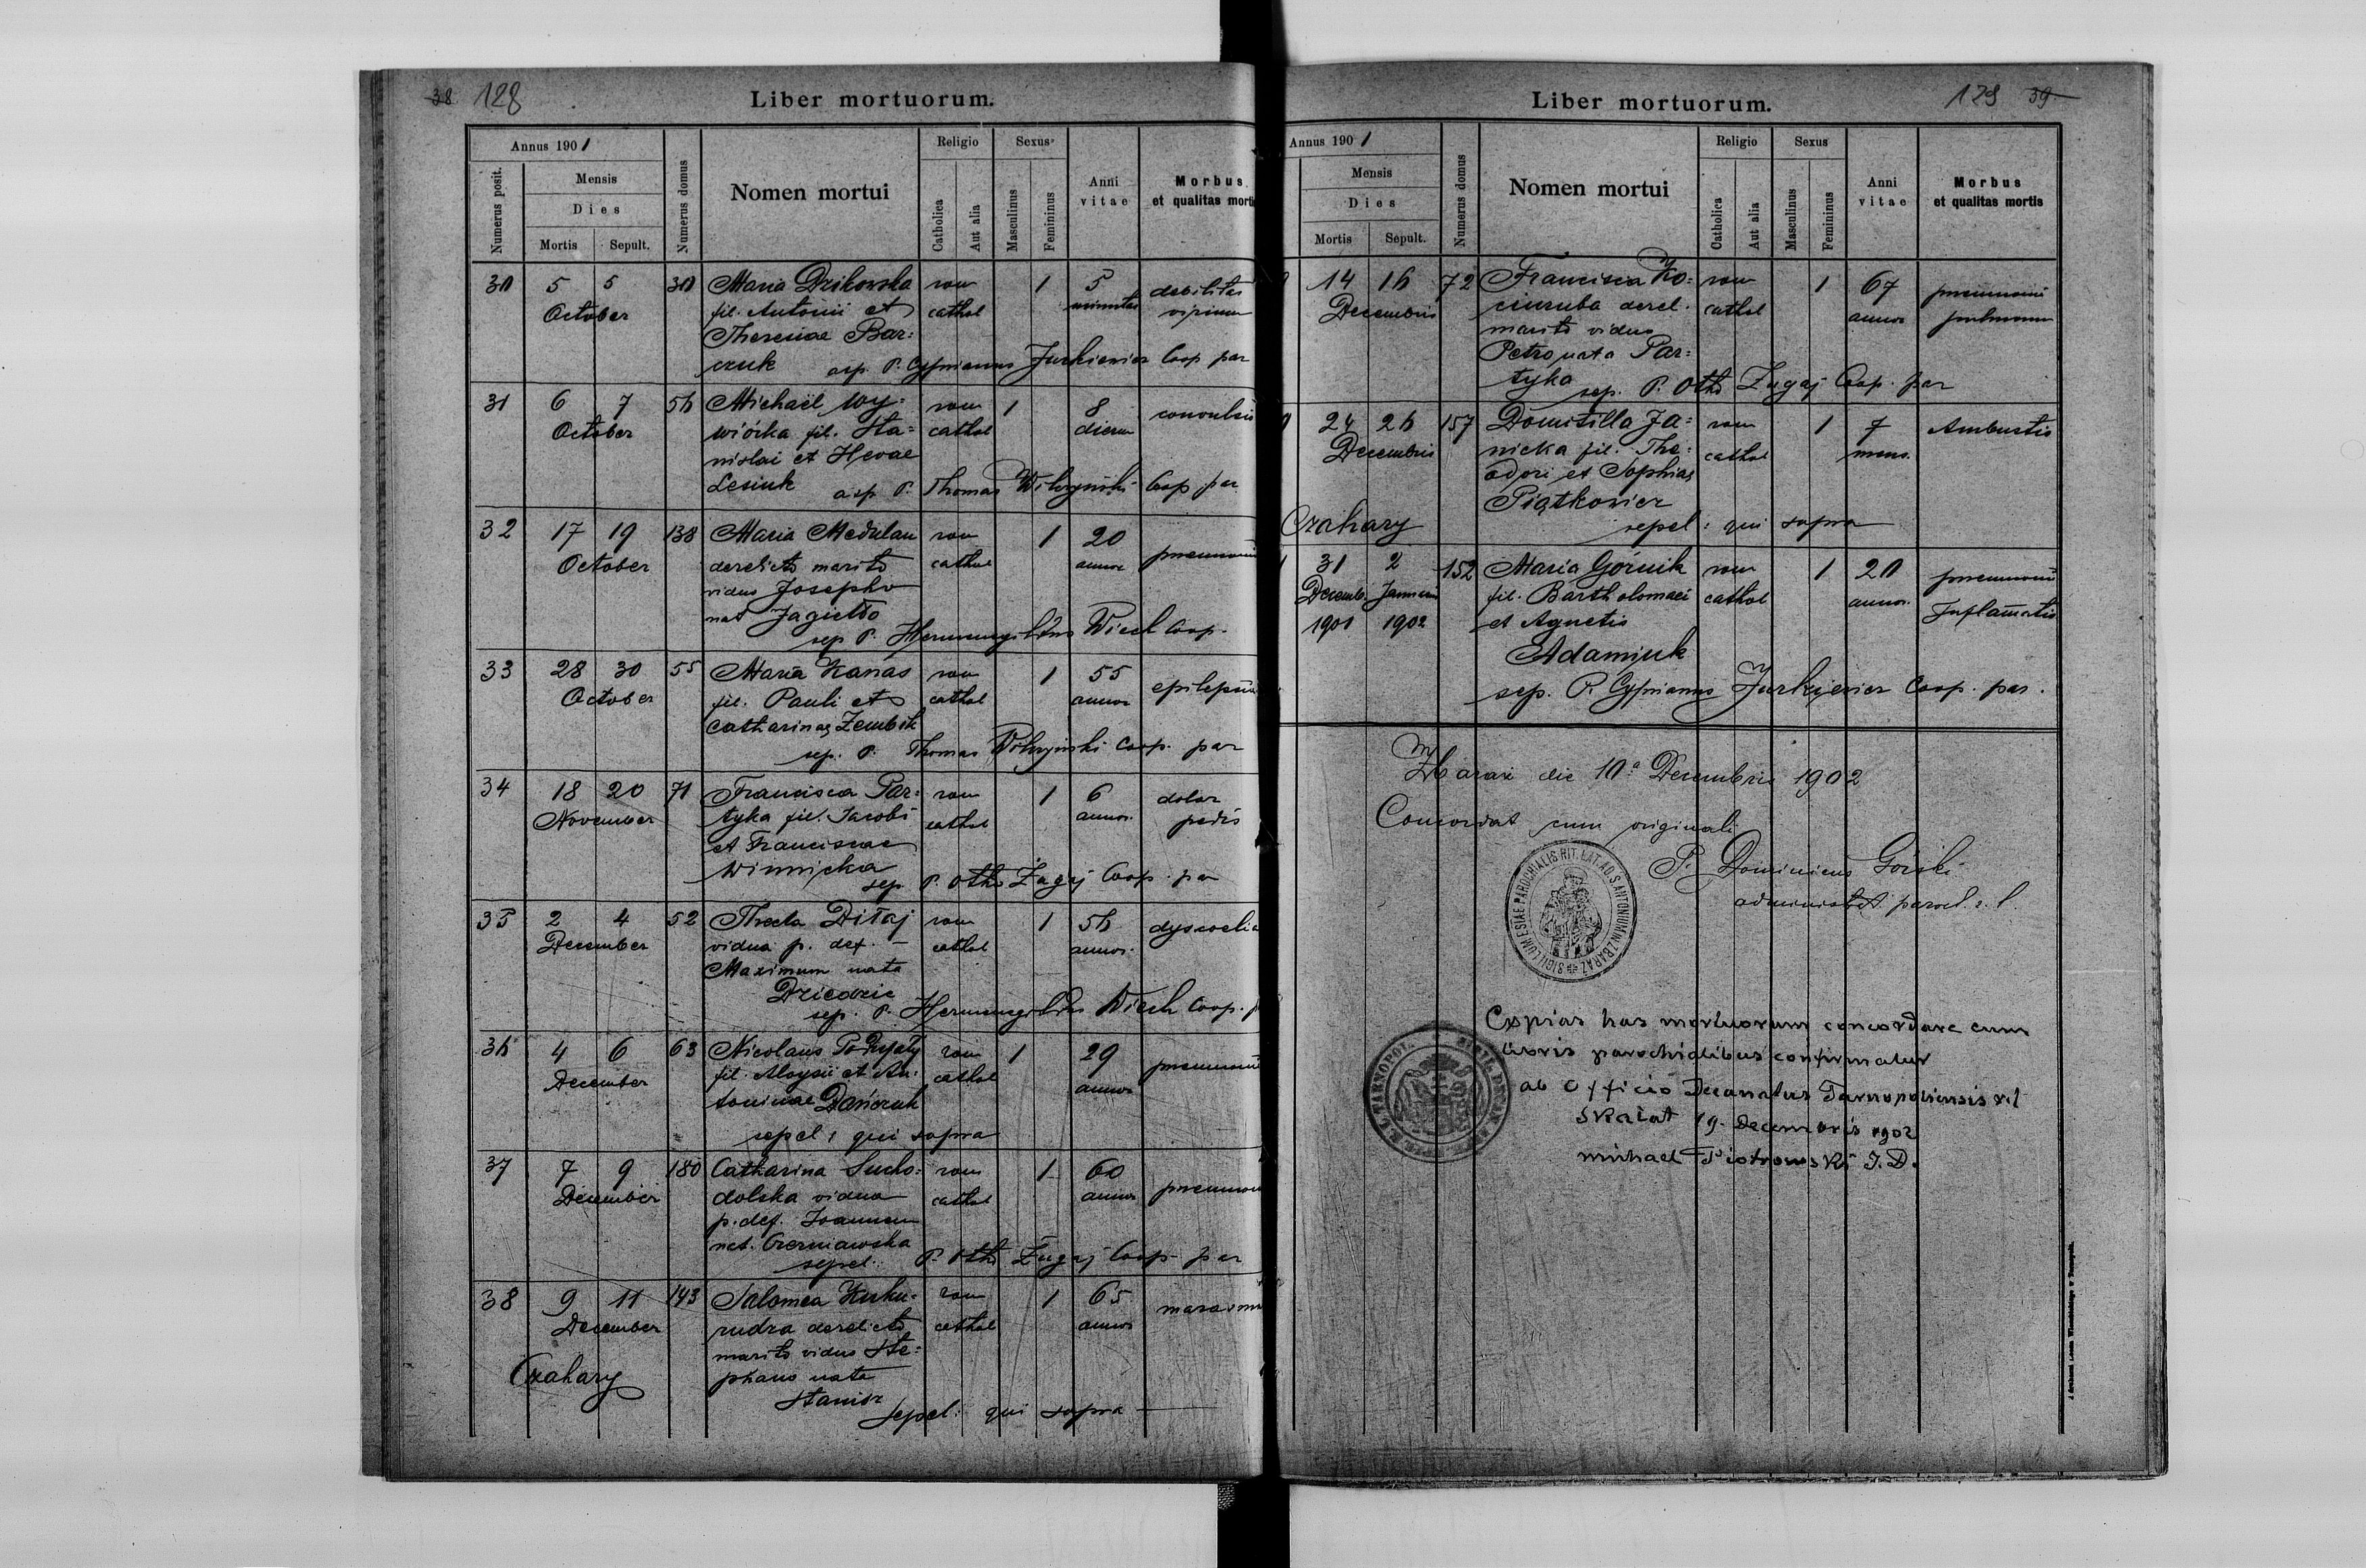 38 128
Liber mortuorum.
Annus 1901
Numerus posit.
Mensis
Dies
Mortis Sepult.
Numerus domus
Nomen mortui
Religio
Catholica
Aut alia
Sexus
Masculinus
Femininus
Anni
vitae
Morbus
et qualitas mortis
30 5 5 30 Maria Dzikowska rom 1 5 debilitas
October fil. Antonii et cathol minutas
Theresiae Bar=
czuk asp. P. Cyprianus Jurkiewicz Coop par
31 6 7 56 Michaël Wy= rom 1 8 convulsio
October wiórka fil. Sta= cathol dierum
nislai et Hevae
Lesiuk asp P. Thomas Coop par
32 17 19 138 Maria Medulan rom 1 20 pneumonia
October derelicto marito cathol annor
viduo Josepho
nat Jagiełło
sep P. Hermenegildus Wiech Coop.
33 28 30 55 Maria Kanas rom 1 55 epilepsia
October fil. Pauli et cathol annor
Catharinae Zembik
sep. P. Thomas Coop. par
34 18 20 71 Francisca Par= rom 1 6 dolor
November tyka fil. Jacobi cathol annor. pedis
et Franciscae
Winnicka
sep P. Otho Zagaj Coop. par
35 2 4 52 Thecla Ditaj rom 1 56
December vidua p. def. – cathol annor.
Maximum nata
Dziedzic
sep. P. Hermenegildus Wiech Coop.
36 4 6 63 Nicolaus rom 1 29 pneumonia
December fil. Aloysii et An= cathol annor
toninae Dańczuk
sepel: qui supra
37 7 9 180 Catharina Sucho= rom 1 60 pneumon
December dolska vidua cathol annor
p. def. Joannem
nat. Czerniawska
sepel: P. Otho Zagaj Coop par
38 9 11 143 Salomea Kuku= rom 1 65
December rudza derelicto cathol annor
marito viduo Ste=
Czahary phano nata
Stanisz
Sepel: qui supra
Liber mortuorum.
129 39
Annus 1901
Mensis
Dies
Mortis Sepult.
Numerus domus
Nomen mortui
Religio
Catholica
Aut alia
Sexus
Masculinus
Femininus
Anni
vitae
Morbus
et qualitas mortis
14 16 72 Francisca Ko= rom 1 67
Decembris ciuruba derel. cathol annor
marito viduo
Petro nata Par=
tyka sep. P. Otho Zagaj Coop. par
24 26 157 Domitilla Ja= rom 1 7 Ambustio
Decembris nicka fil. The= cathol mens.
odori et Sophiae
Piątkowicz
Czahary sepel: qui supra
31 2 152 Maria Górnik rom 1 20
Decemb. fil. Bartholomaei cathol annor.
1901 1902 et Agnetis
Adamjuk
sep. P. Cyprianus Jurkiewicz Coop. par.
Zbaraż die 10ª Decembris 1902
Concordat cum originali
P. Dominicus Górski
SIGILLUM ESIAE PAROCHIALIS RIT. LAT. AD S. ANTONIUM IN ZBARAŻ
Copias has mortuorum concordare cum
libris parochialibus confirmatur
ab Officio Decanatus Tarnopoliensis r. l
Skałat 19. Decembris 1902
Michael Piotrowski
TARNOPOL.